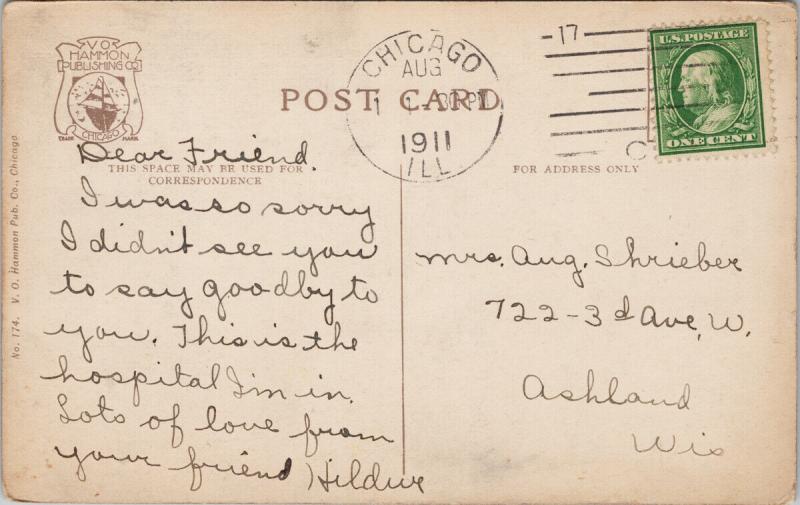 V.O.
HAMMON
PUBLISHING CO.
CHICAGO
TRADE MARK
No. 174. V. O. Hammon Pub. Co., Chicago
POST CARD
CHICAGO
AUG
1
30 PM
1911
ILL
17
C
U.S. POSTAGE
ONE CENT
THIS SPACE MAY BE USED FOR
CORRESPONDENCE
FOR ADDRESS ONLY
Dear Friend.
I was so sorry
I didn't see you
to say goodby to
you. This is the
hospital I'm in.
Lots of love from
your friend Hildur
Mrs. Aug. Shrieber
722-3d Ave, W.
Ashland
Wis